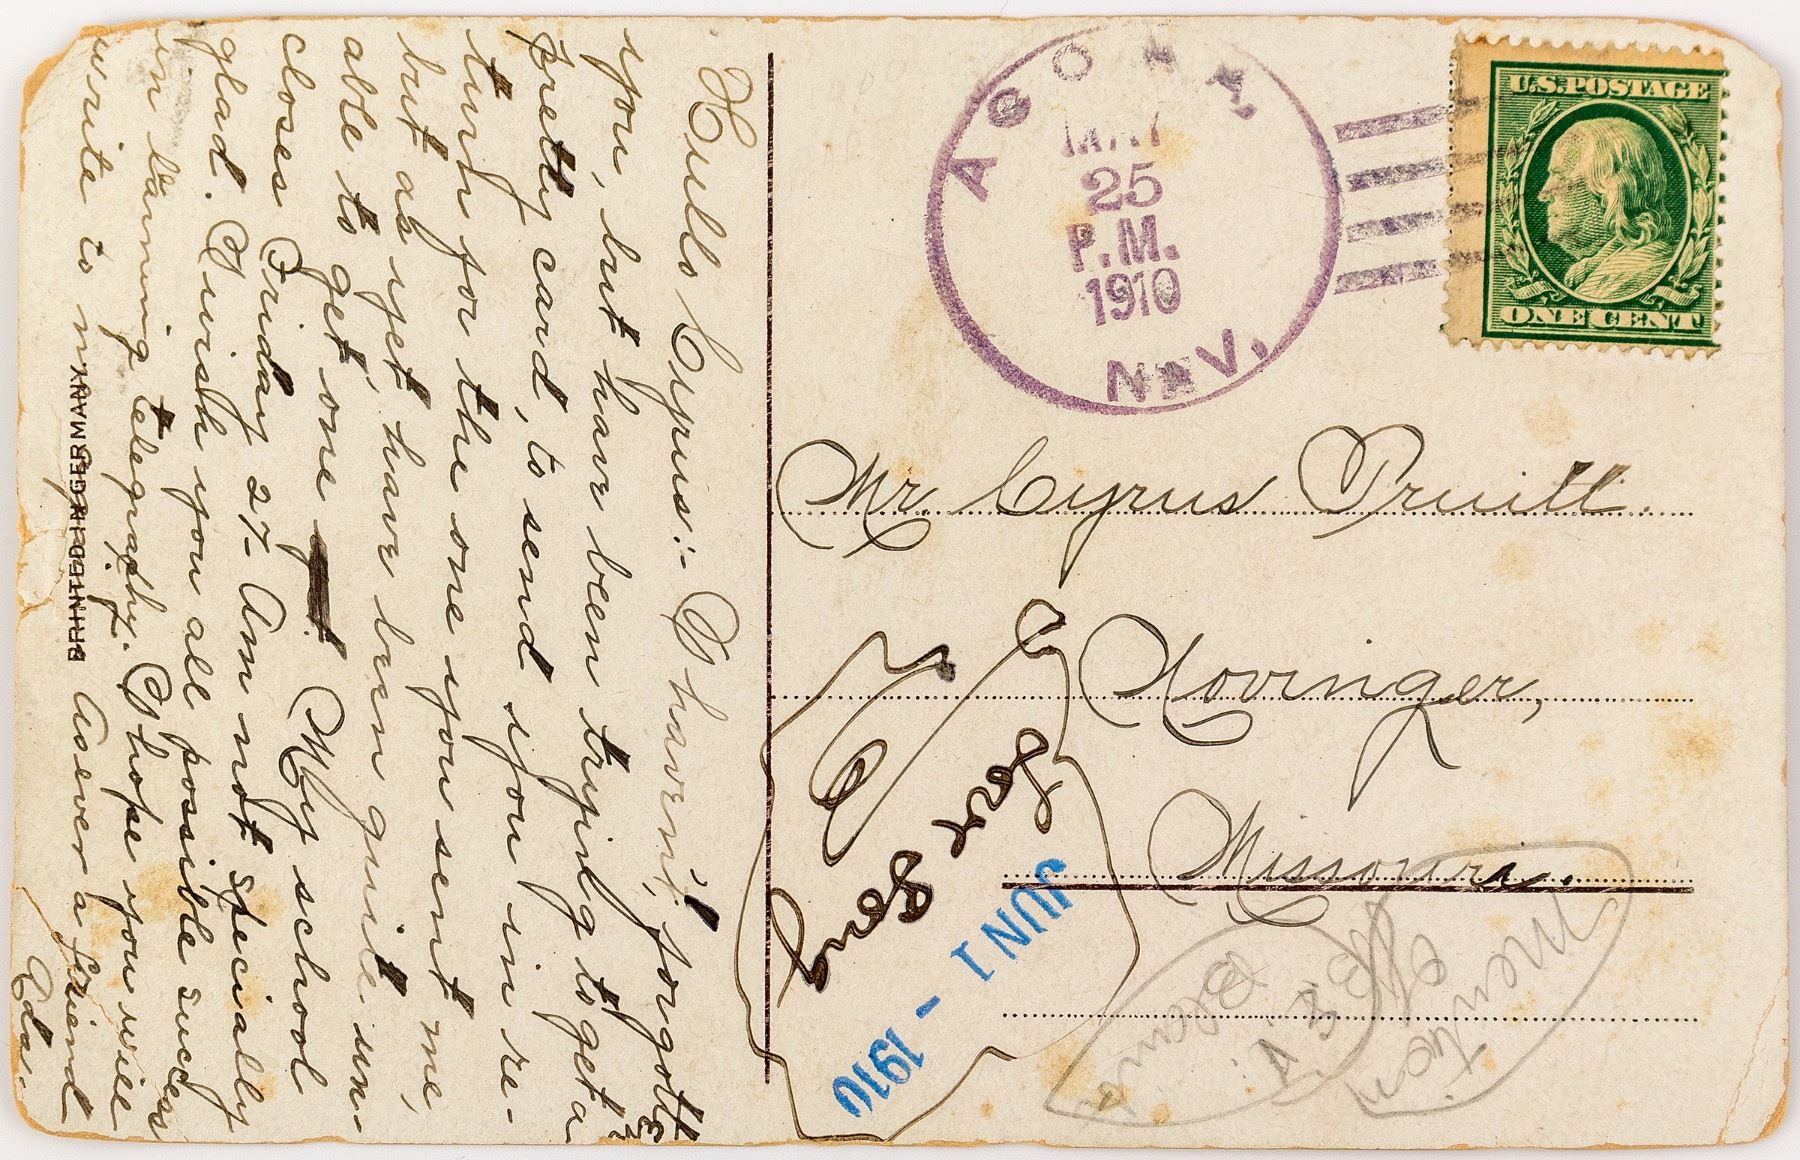 Hullo Cyrus:- I havent, forgotten
you, but have been trying to get a
pretty card, to send you in re-
turn for the one you sent me,
but as yet, have been quite un-
able to get one. My school
closes Friday 27- Am not specially
glad. I wish you all possible success
in learning telegraphy. I hope you will
write to m
As ever a friend
Ada.
PRINTED IN GERMANY
MAY
25
P.M.
1910
NEV.
U.S. POSTAGE
ONE CENT
Mr. Cyrus Pruitt.
Novinger,
Missouri.
JUN 1 - 1910